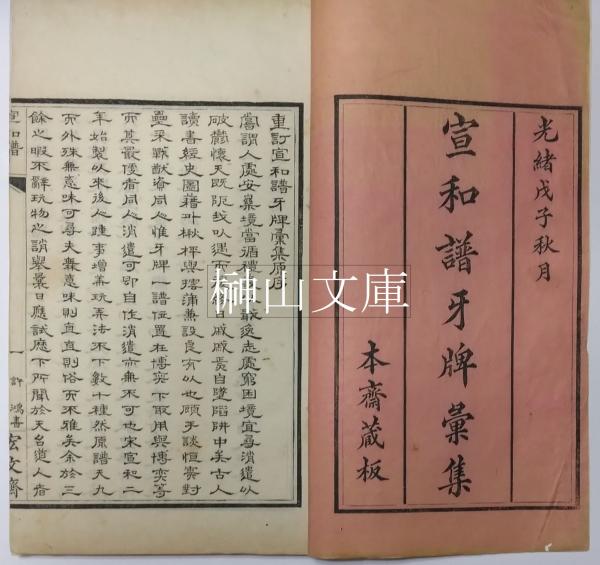 光緒戊子秋月
宣和譜牙牌彙集
本齋蔵板
重訂宣和譜牙牌彙集原序
嘗謂人處安樂境當循禮
最逸志處窮困境宜尋消遣以
破鬱懷天既阨我以遇而
戚戚焉自墜陷阱中美古人
讀書經史圖籍外楸枰與摴蒲兼設良有以也顧手談恒賓對
壘采戰猶資同人惟牙牌一譜位置在博奕下取用與博奕等
而其最優者同人消遣可即自作消遣亦無不可也宋宣和二
年始製以來後人踵事增華玩弄法不下數十種然原譜天九
而外殊無意味可尋夫無意味則直直則俗而不雅矣余於三
餘之暇不辭玩物之誚舉曩日應試應下所聞於天台道人者
宣和譜
一
許鴻書
宏文齋
榊山文庫